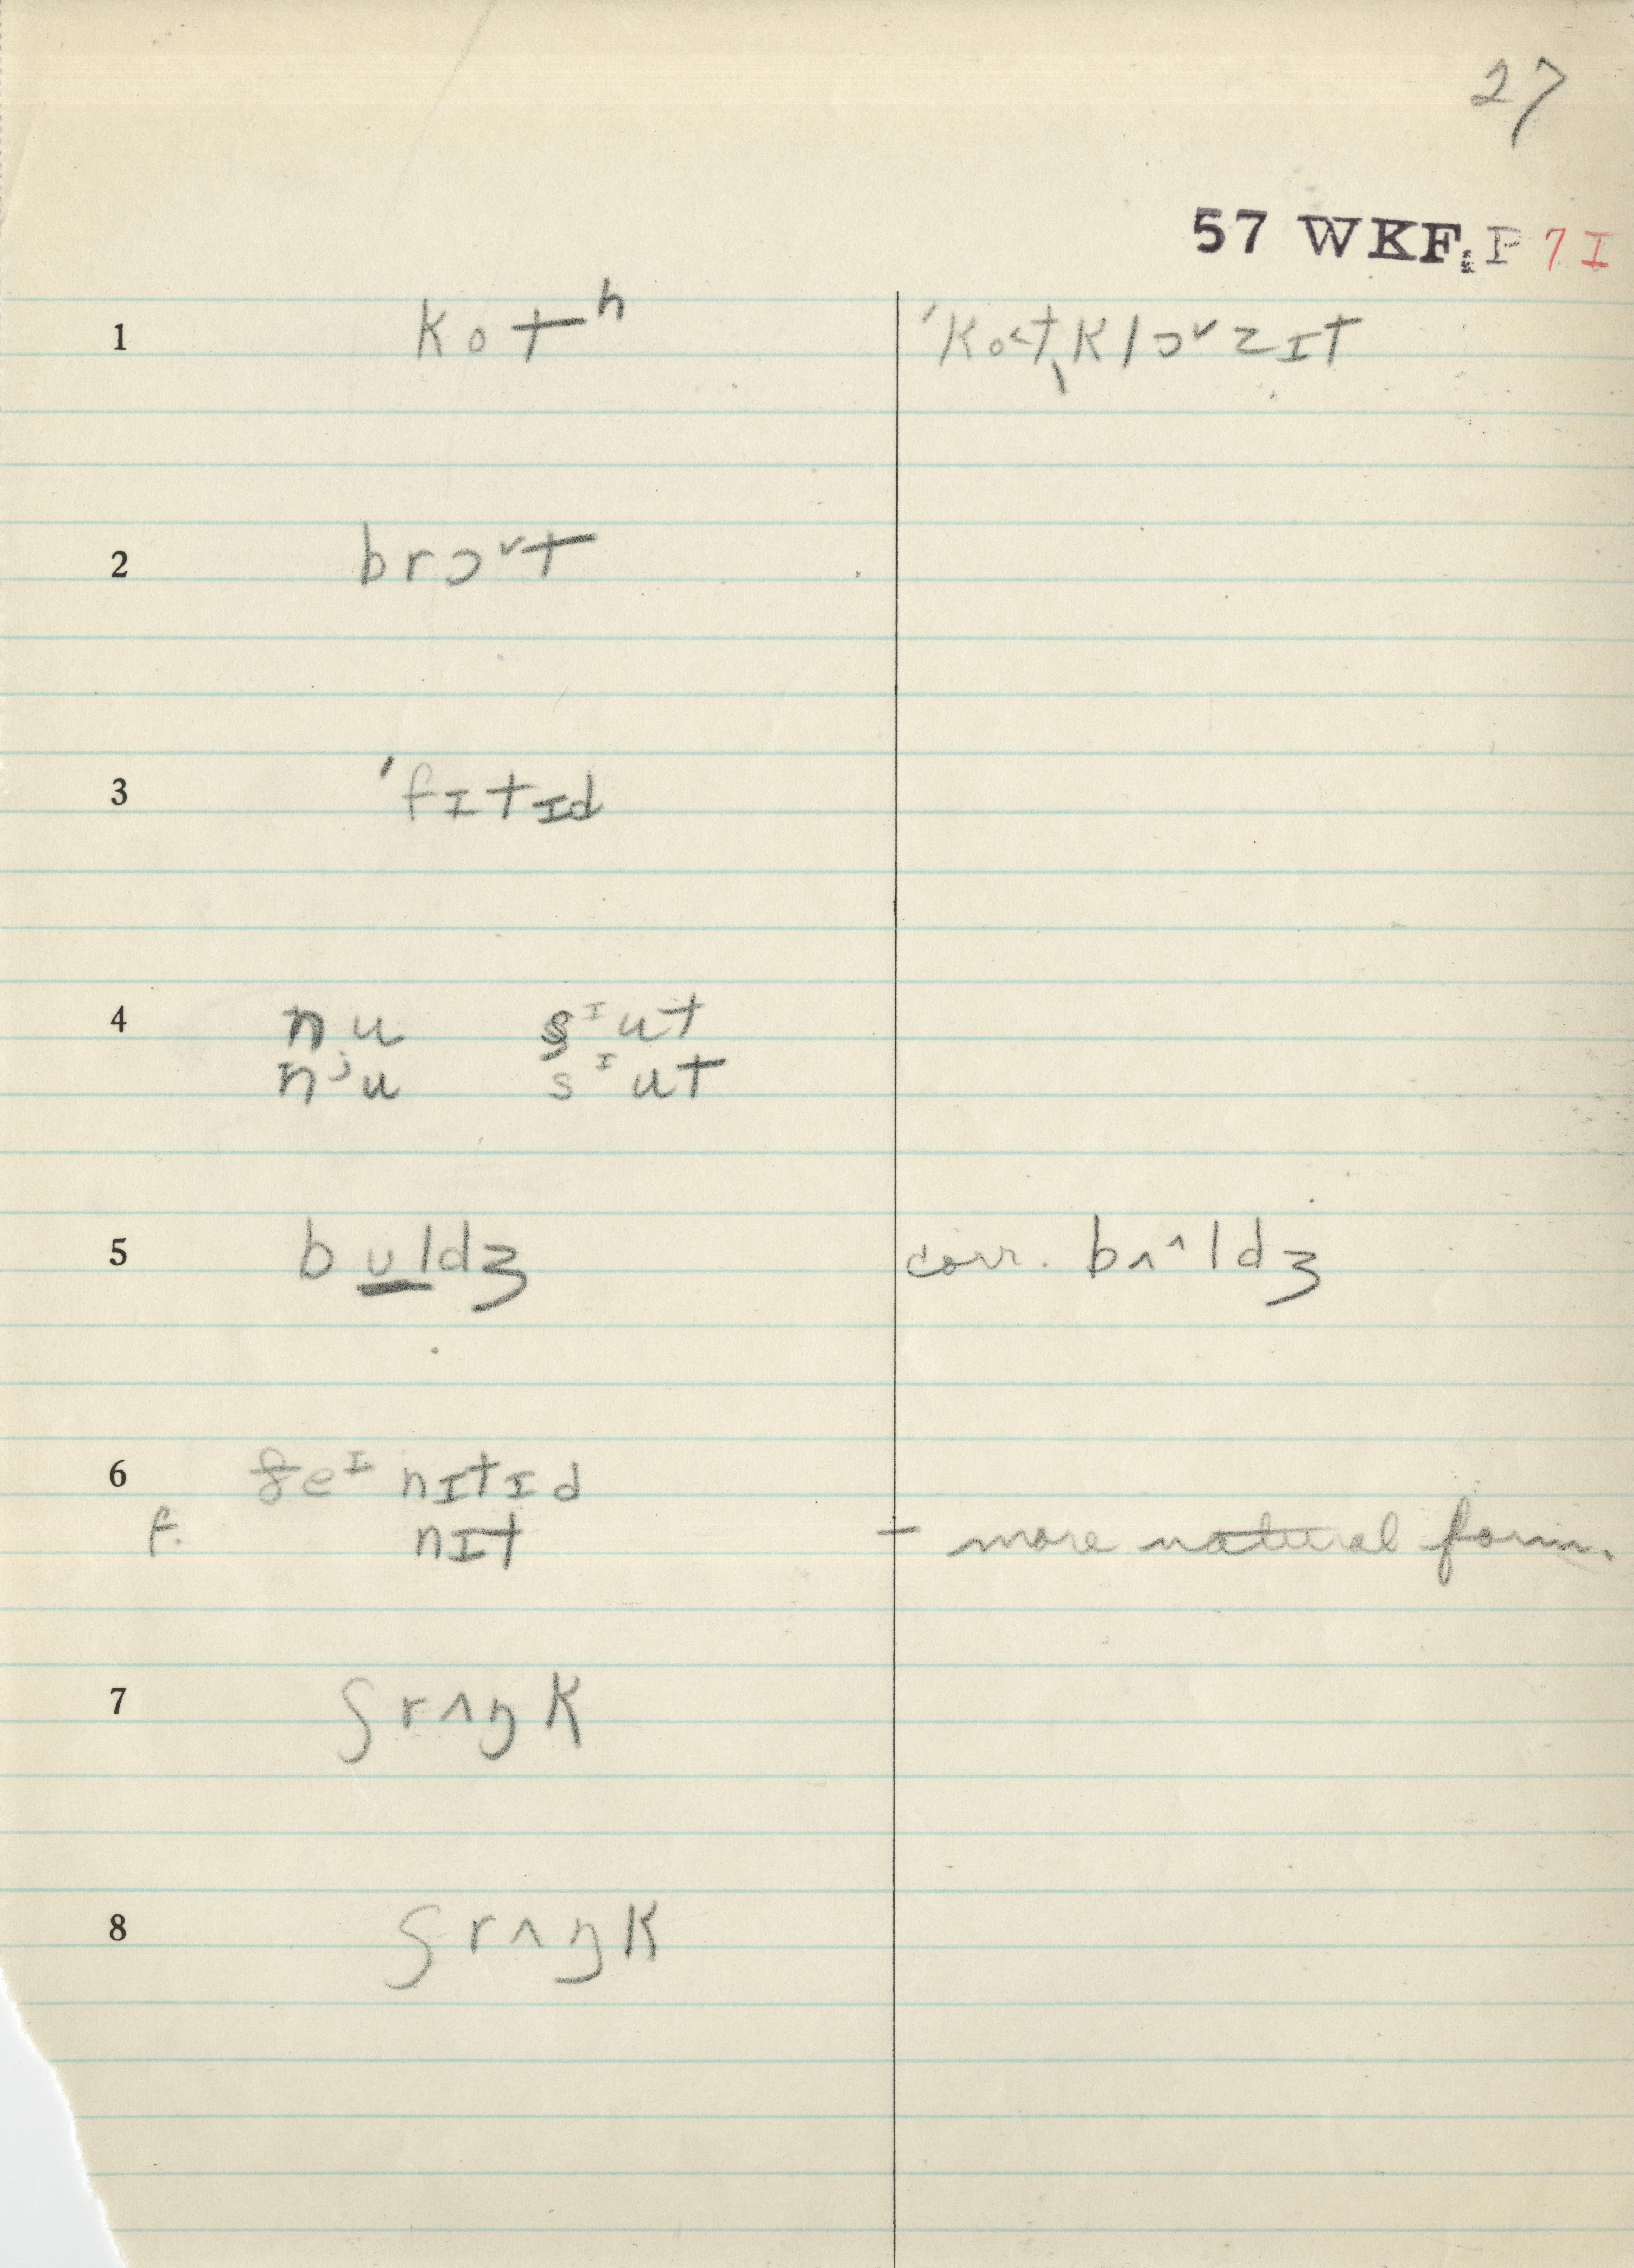 27
57 WKF:P 7 I
1 kotʰ ˈko˂t̖klɔ˅zɪt
2 brɔ˅t
3 ˈfɪtɪd
4 nu sᶦut
nʲu sᶦut
5 bʊldʒ corr. bʌ^ldʒ
6 eᶦ nɪtɪd
f. nɪt – more natural form.
7 ʃrʌŋk
8 ʃrʌŋk